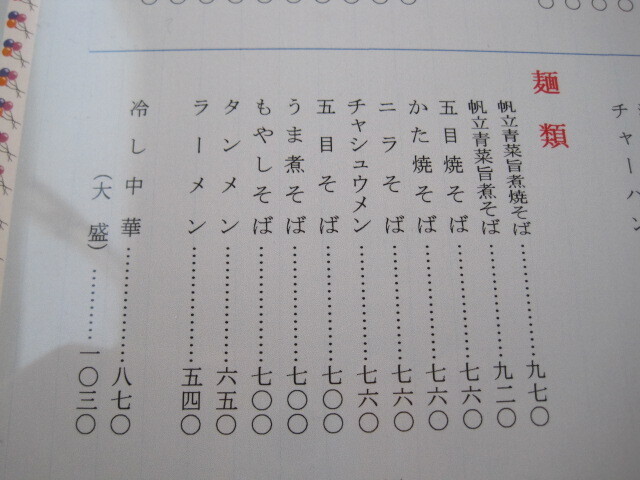 チャーハン
麺類
帆立青菜旨煮焼そば…………九七〇
帆立青菜旨煮そば…………九二〇
五目焼そば…………七六〇
かた焼そば…………七六〇
ニラそば…………七六〇
チャシュウメン…………七六〇
五目そば…………七〇〇
うま煮そば…………七〇〇
もやしそば…………七〇〇
タンメン…………六五〇
ラーメン…………五四〇
冷し中華…………八七〇
(大盛)…………一〇三〇